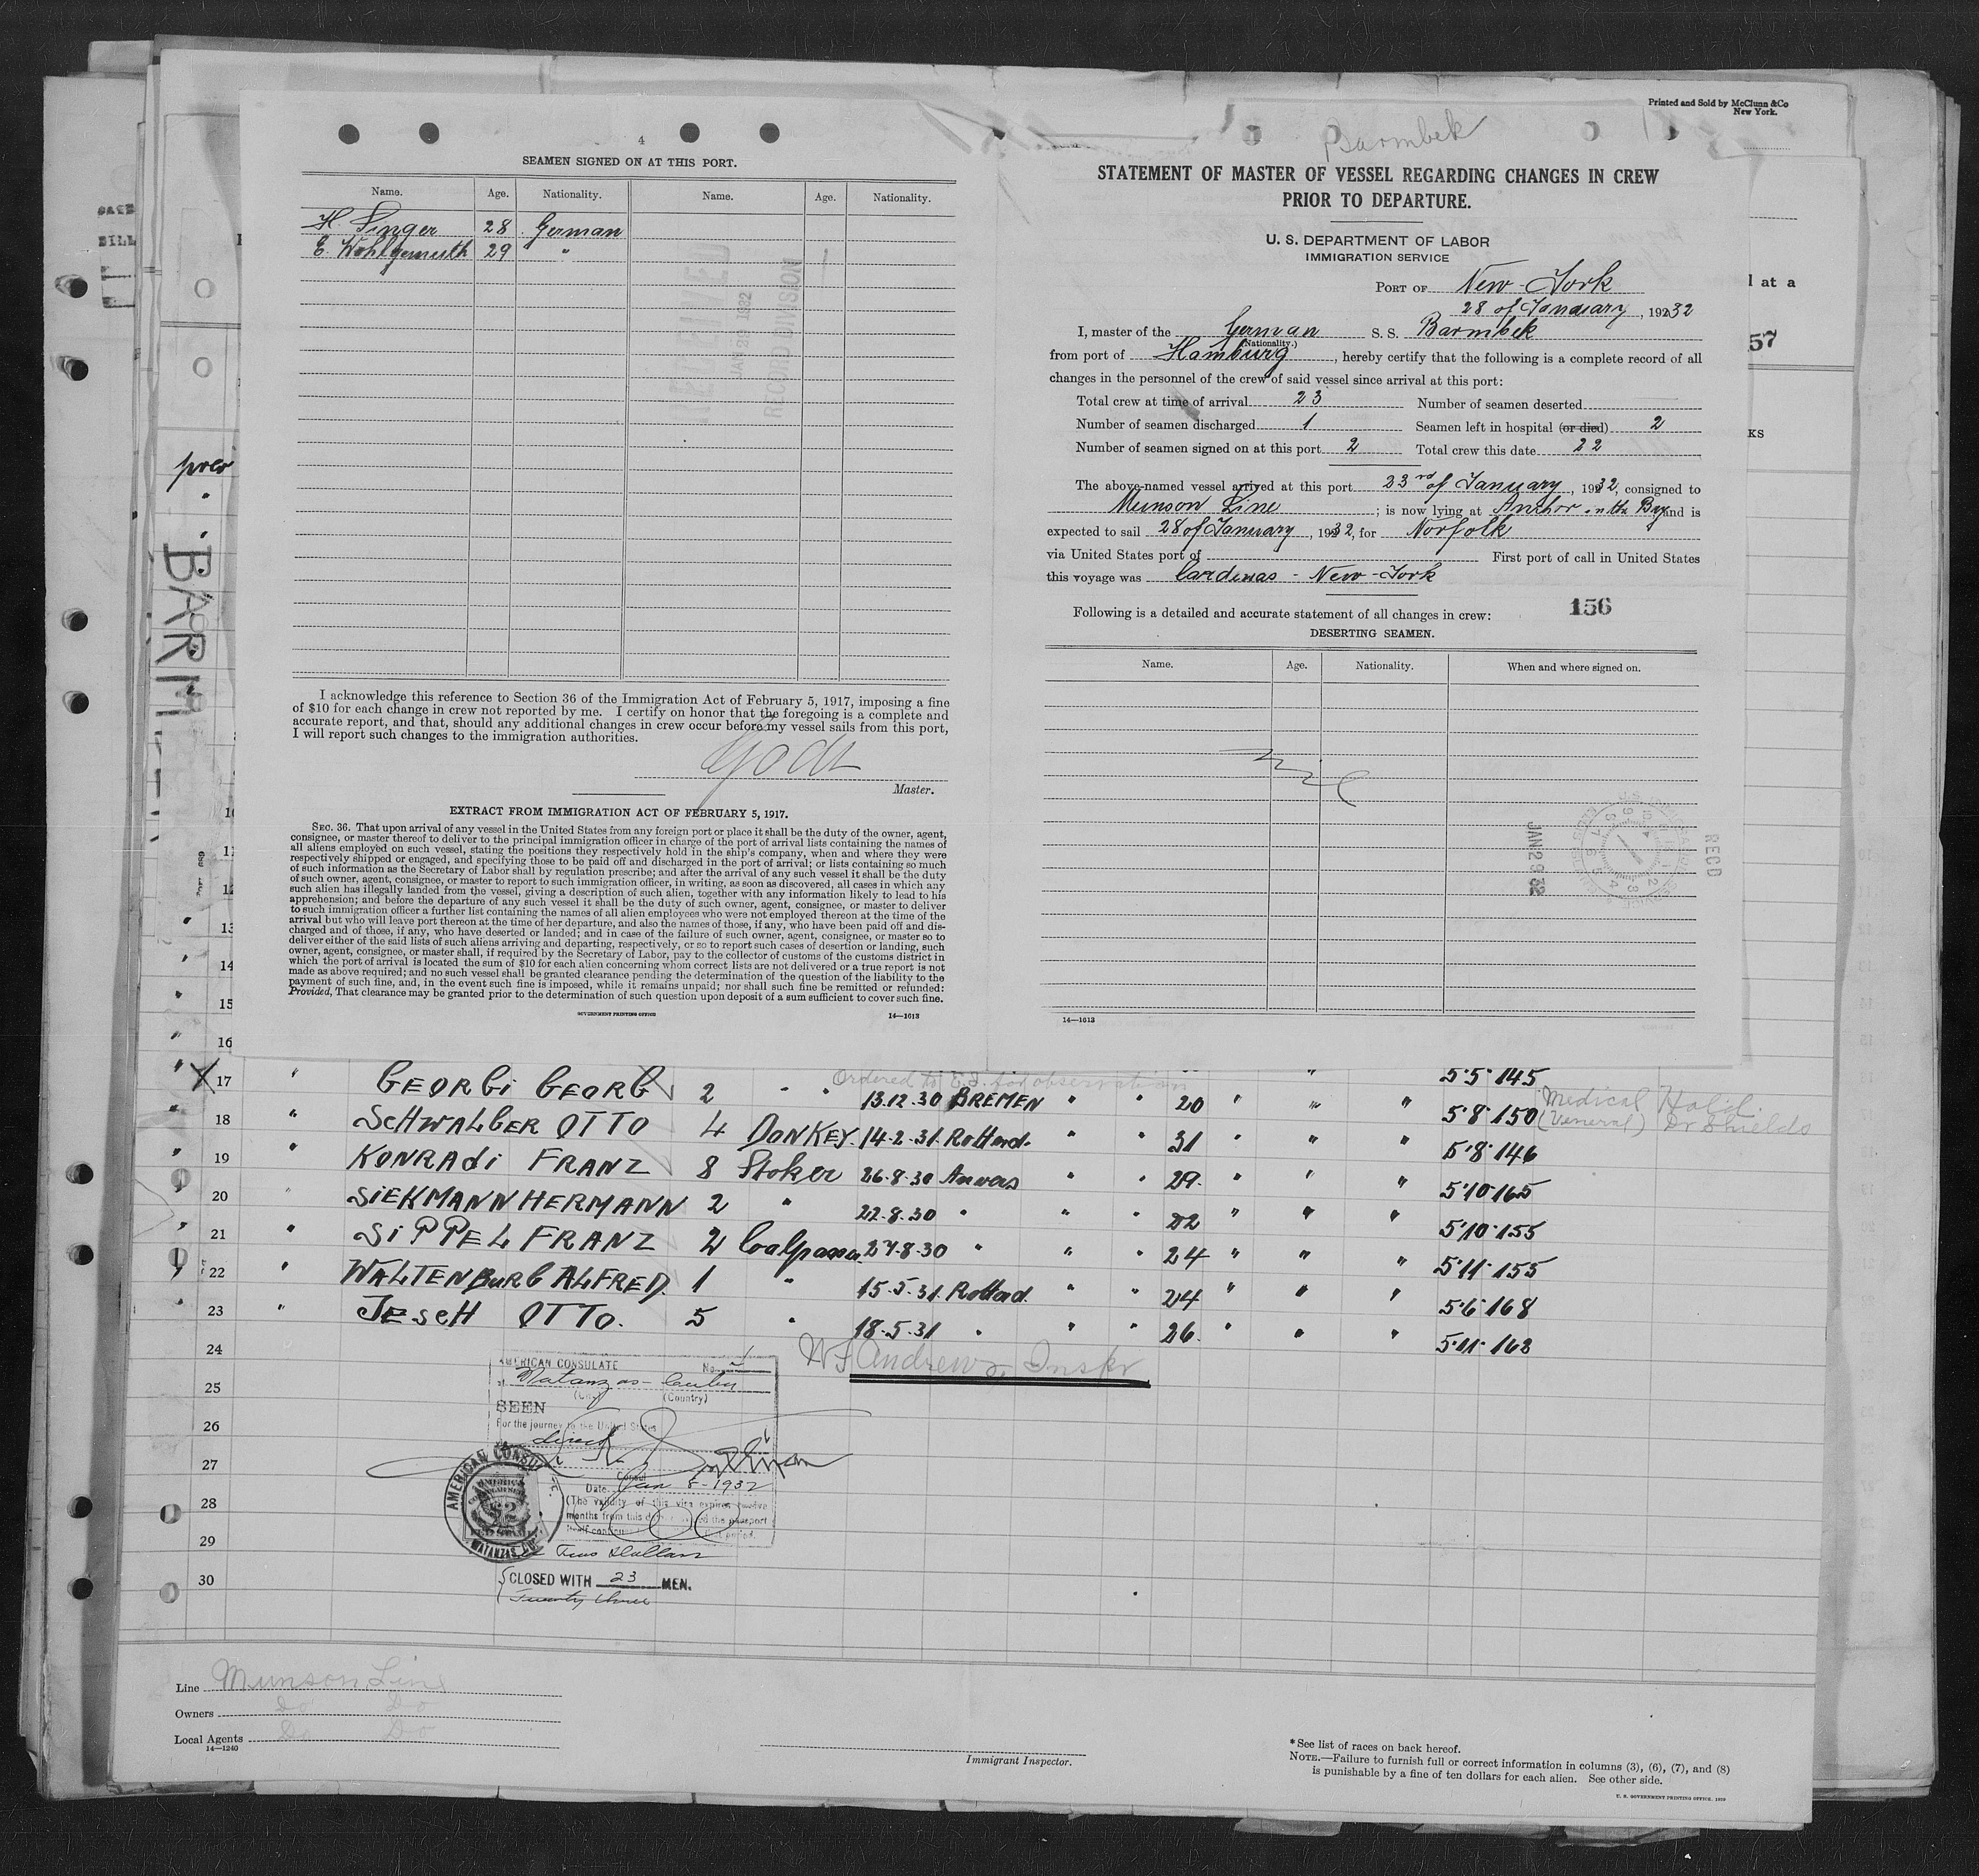 Printed and Sold by McClunn & Co
New York.
4
SEAMEN SIGNED ON AT THIS PORT.
Name. Age. Nationality. Name. Age. Nationality.
H. Singer 28 German
E. Wohlgemuth 29 "
RECEIVED
JAN 29 1932
RECORD DIVISION
I acknowledge this reference to Section 36 of the Immigration Act of February 5, 1917, imposing a fine
of $10 for each change in crew not reported by me. I certify on honor that the foregoing is a complete and
accurate report, and that, should any additional changes in crew occur before my vessel sails from this port,
I will report such changes to the immigration authorities.
Master.
EXTRACT FROM IMMIGRATION ACT OF FEBRUARY 5, 1917.
SEC. 36. That upon arrival of any vessel in the United States from any foreign port or place it shall be the duty of the owner, agent,
consignee, or master thereof to deliver to the principal immigration officer in charge of the port of arrival lists containing the names of
all aliens employed on such vessel, stating the positions they respectively hold in the ship's company, when and where they were
respectively shipped or engaged, and specifying those to be paid off and discharged in the port of arrival; or lists containing so much
of such information as the Secretary of Labor shall by regulation prescribe; and after the arrival of any such vessel it shall be the duty
of such owner, agent, consignee, or master to report to such immigration officer, in writing, as soon as discovered, all cases in which any
such alien has illegally landed from the vessel, giving a description of such alien, together with any information likely to lead to his
apprehension; and before the departure of any such vessel it shall be the duty of such owner, agent, consignee, or master to deliver
to such immigration officer a further list containing the names of all alien employees who were not employed thereon at the time of the
arrival but who will leave port thereon at the time of her departure, and also the names of those, if any, who have been paid off and dis-
charged and of those, if any, who have deserted or landed; and in case of the failure of such owner, agent, consignee, or master so to
deliver either of the said lists of such aliens arriving and departing, respectively, or so to report such cases of desertion or landing, such
owner, agent, consignee, or master shall, if required by the Secretary of Labor, pay to the collector of customs of the customs district in
which the port of arrival is located the sum of $10 for each alien concerning whom correct lists are not delivered or a true report is not
made as above required; and no such vessel shall be granted clearance pending the determination of the question of the liability to the
payment of such fine, and, in the event such fine is imposed, while it remains unpaid; nor shall such fine be remitted or refunded:
Provided, That clearance may be granted prior to the determination of such question upon deposit of a sum sufficient to cover such fine.
GOVERNMENT PRINTING OFFICE 14—1613
Barmbek
STATEMENT OF MASTER OF VESSEL REGARDING CHANGES IN CREW
PRIOR TO DEPARTURE.
U. S. DEPARTMENT OF LABOR
IMMIGRATION SERVICE
PORT OF New-York
28 of January, 1932
I, master of the German S. S. Barmbek
(Nationality.)
from port of Hamburg, hereby certify that the following is a complete record of all
changes in the personnel of the crew of said vessel since arrival at this port:
Total crew at time of arrival 23 Number of seamen deserted
Number of seamen discharged 1 Seamen left in hospital (or died) 2
Number of seamen signed on at this port 2 Total crew this date 22
The above-named vessel arrived at this port 23rd of January, 1932, consigned to
Munson Line; is now lying at Anchor in the Bay and is
expected to sail 28 of January, 1932, for Norfolk
via United States port of First port of call in United States
this voyage was Cardenas - New-York
156
Following is a detailed and accurate statement of all changes in crew:
DESERTING SEAMEN.
Name. Age. Nationality. When and where signed on.
Nil
JAN 28 32
RECD
14—1613
l at a
57
KS
BARM
11
12
13
14
15
16
5·5·145
Ordered to E.I. for observation
17 " GEORGI GEORG 2 " " 13.12.30 BREMEN " " 20 " " " 5·8·150 Medical Hold
(Veneral) Dr Shields
18 " SCHWALBER OTTO 4 DONKEY. 14-2-31. Rotterd. " " 31 " " " 5·8·146
19 " KONRADI FRANZ 8 Stoker 26-8-30 Anvers " " 29 " " " 5·10·165
20 " SIEKMANN HERMANN 2 " 22.8.30 " " " 22 " " " 5·10·155
21 " SIPPEL FRANZ 2 Coalpasser 27-8-30 " " " 24 " " " 5·11·155
22 " WALTENBURG ALFRED. 1 " 15.5.31. Rotterd. " " 24 " " " 5·6·168
23 " JESCH OTTO. 5 " 18.5.31 " " " 26. " " " 5·11·168
24
W J Andrews, Inspr
25
26
27
28
29
30
AMERICAN CONSULATE No.
at Matanzas - Cuba
(City) (Country)
SEEN
For the journey to the United States
direct
Consul
Date Jan 8-1932
(The validity of this visa expires twelve
months from this date
AMERICAN CONSULATE
MATANZAS, CUBA
Two Dollars
CLOSED WITH 23 MEN.
Twenty three
Line Munson Line
Owners Do Do
Local Agents Do Do
14—1240
Immigrant Inspector.
*See list of races on back hereof.
NOTE.—Failure to furnish full or correct information in columns (3), (6), (7), and (8)
is punishable by a fine of ten dollars for each alien. See other side.
U. S. GOVERNMENT PRINTING OFFICE. 1929